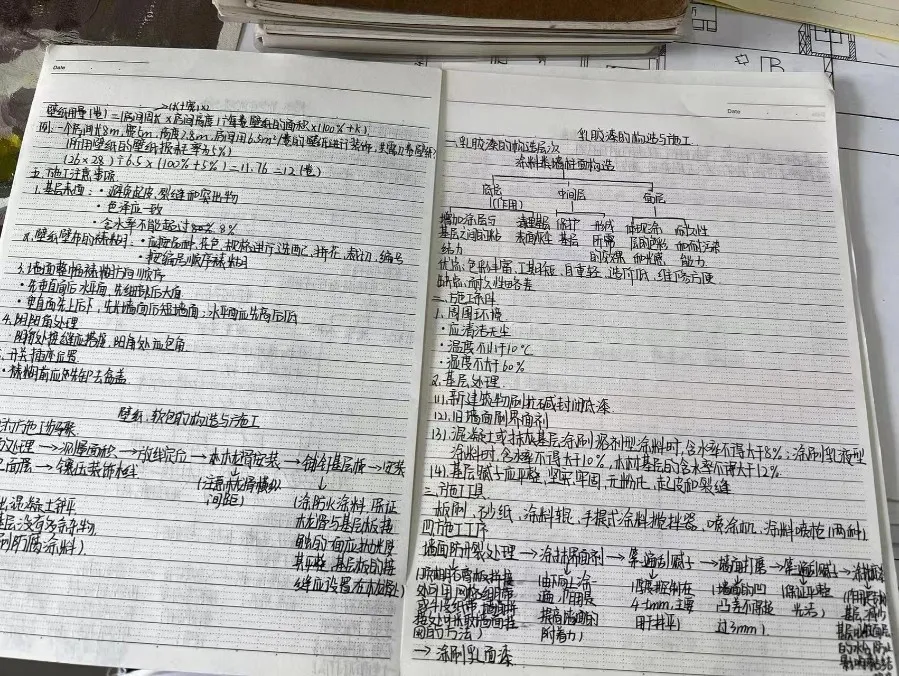 Date
→(长+宽)×2
壁纸用量(卷)=房间周长×房间高度÷每卷壁纸的面积×(100%+K)
例:一个房间长8m,宽5m,高度2.8m,房间用6.5m²/卷的壁纸进行装饰,需几卷壁纸?
(所用壁纸的壁纸损耗率为5%)
(26×2.8)÷6.5×(100%+5%)=11.76=12(卷)
五.施工注意事项
1.基层表面:·避免起皮,裂缝和突出物
·色泽应一致
·含水率不能超过 8%
2.壁纸壁布的裱糊:·应按品种,花色,规格进行选配,拼花,裁切,编号
·按编号顺序裱糊
3.墙面整幅裱糊方向顺序
·先垂直后水平面,先细部后大面
·垂直面先上后下,先长墙面后短墙面;水平面应先高后低
4.阴阳角处理
阴角处接缝应搭接,阳角处应包角
开关插座位置
·裱糊前应先卸去盒盖
壁纸、软包的构造与施工
施工步骤
处理→测量面积→放线定位→木龙骨安装→铺钉基层板→安装
面层→镶压装饰线
(注意木龙骨横纵间距)
(涂防水涂料,保证
木龙骨与基层板接
触的一面应抛光使
其平整,基层板的接
缝应设置在木龙骨上)
出混凝土砂平
基层没有多余杂物
刷防腐涂料)
Date
乳胶漆的构造与施工
一.乳胶漆的构造层次
涂料类墙柱面构造
底层 中间层 面层
(作用)
增加涂层与
基层之间的粘
结力
清理基层
表面灰尘
保护
基层
形成
所需
的效果
体现涂
层的色彩
和光感
耐久性
和耐污染
能力
优点:色彩丰富,工期短,自重轻,造价低,维修方便
缺点:耐久性略差
二.施工条件
1.周围环境
·应清洁无尘
·温度不小于10℃
·湿度不大于60%
2.基层处理
(1).新建筑物刷抗碱封闭底漆
(2).旧墙面刷界面剂
(3).混凝土或抹灰基层涂刷溶剂型涂料时,含水率不得大于8%;涂刷乳液型
涂料时,含水率不得大于10%,木材基层的含水率不得大于12%
(4).基层腻子应平整,坚实,牢固,无粉化,起皮和裂缝
三.施工工具
板刷、砂纸、涂料辊、手提式涂料搅拌器、喷涂机、涂料喷枪(两种)
四.施工工序
墙面防开裂处理→涂抹界面剂→集遍刮腻子→墙面打磨→集遍刮腻子→涂刷
(由下向上涂
一遍,作用是
提高墙面的
附着力)
(厚度控制在
4-5mm,主要
用于找平)
(墙面的凹
凸差不得超
过3mm)
(保证平整
光洁)
→涂刷乳面漆